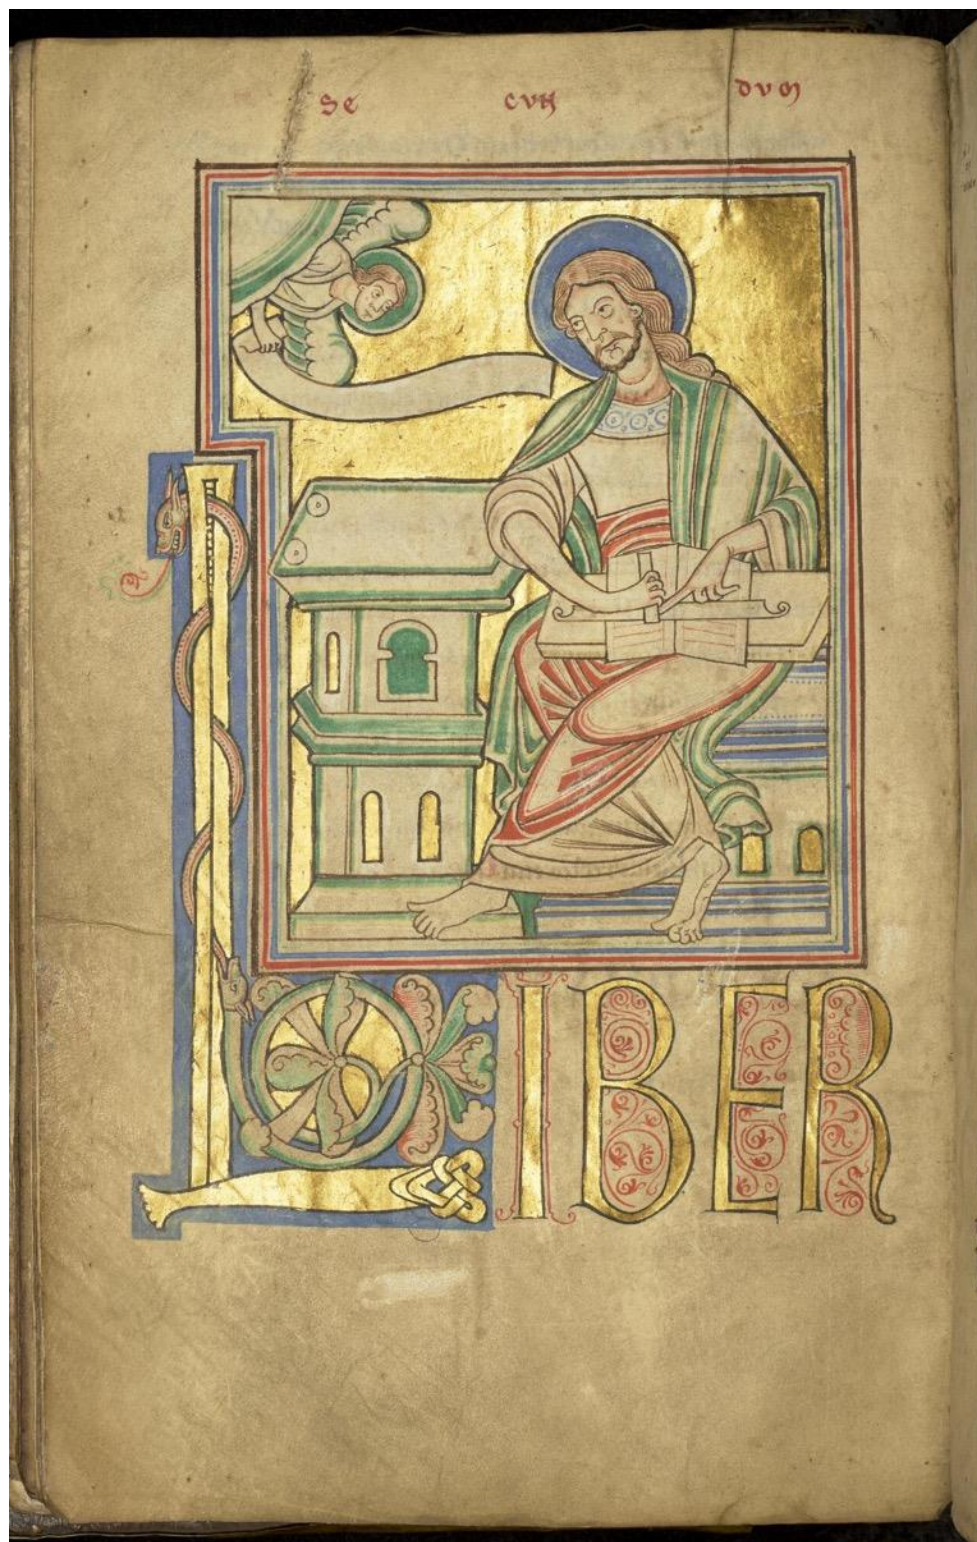 SE CUN DUM
LIBER